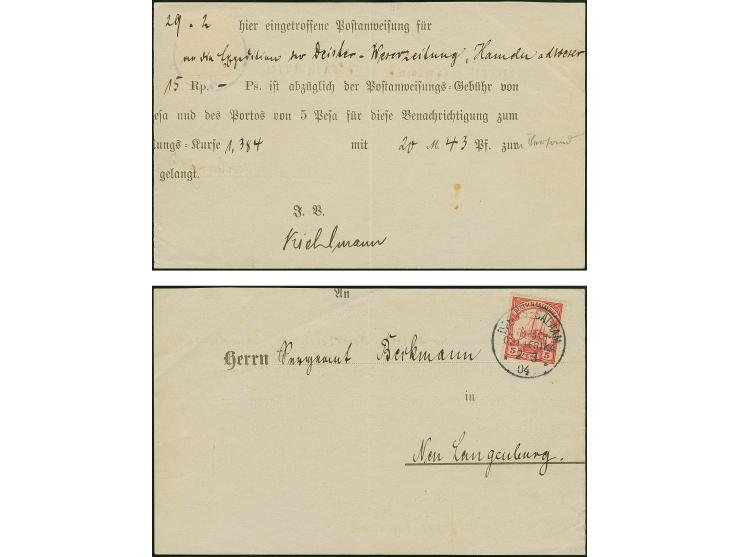 29. 2 hier eingetroffene Postanweisung für
an die Expedition der Deister-Weserzeitung, Hameln a d Weser
15 Rp. – Ps. ist abzüglich der Postanweisungs-Gebühr von
esa und des Portos von 5 Pesa für diese Benachrichtigung zum
ungs-Kurse 1,384 mit 20 M. 43 Pf. zum Versand
gelangt.
J. V.
Kiehlmann
An
Herrn Sergeant Berkmann
in
Neu Langenburg.
5 5
DAR-ES-SALAAM
2 3
04